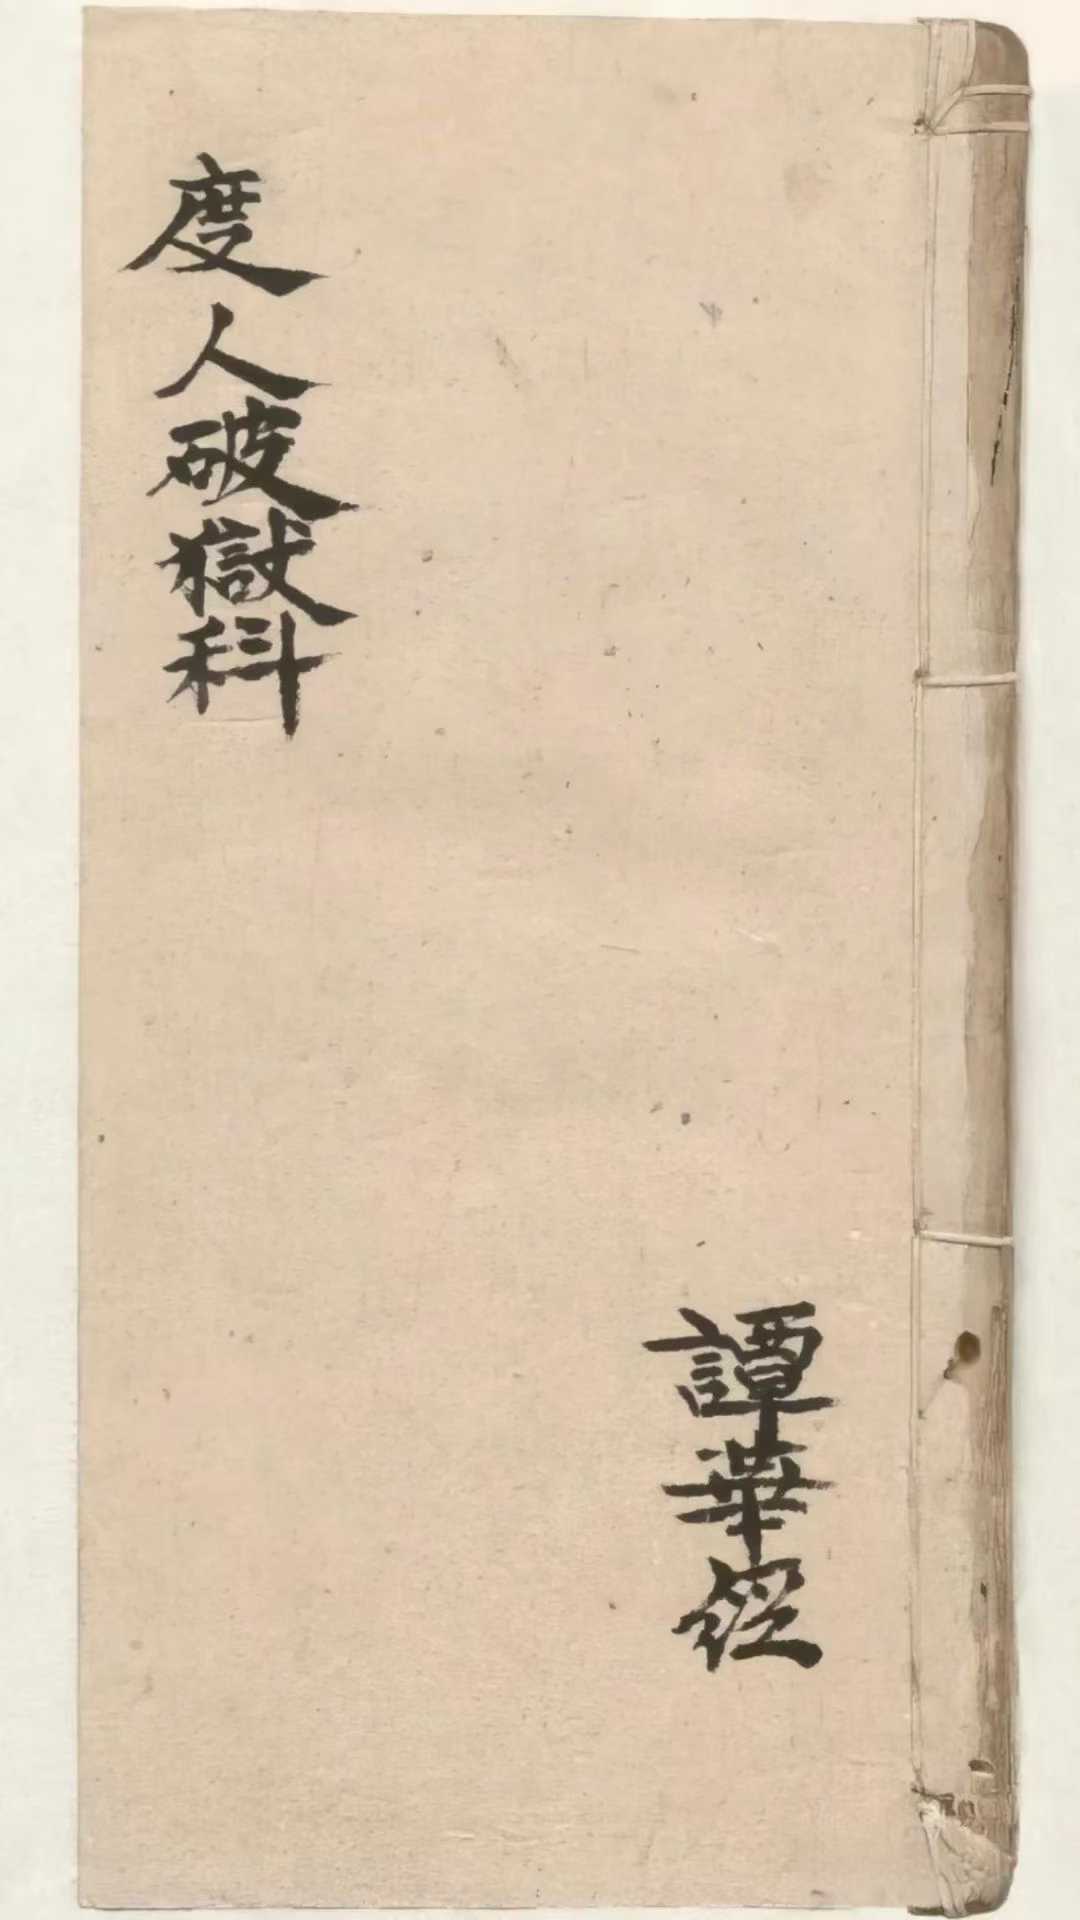 度人破獄科
譚華經